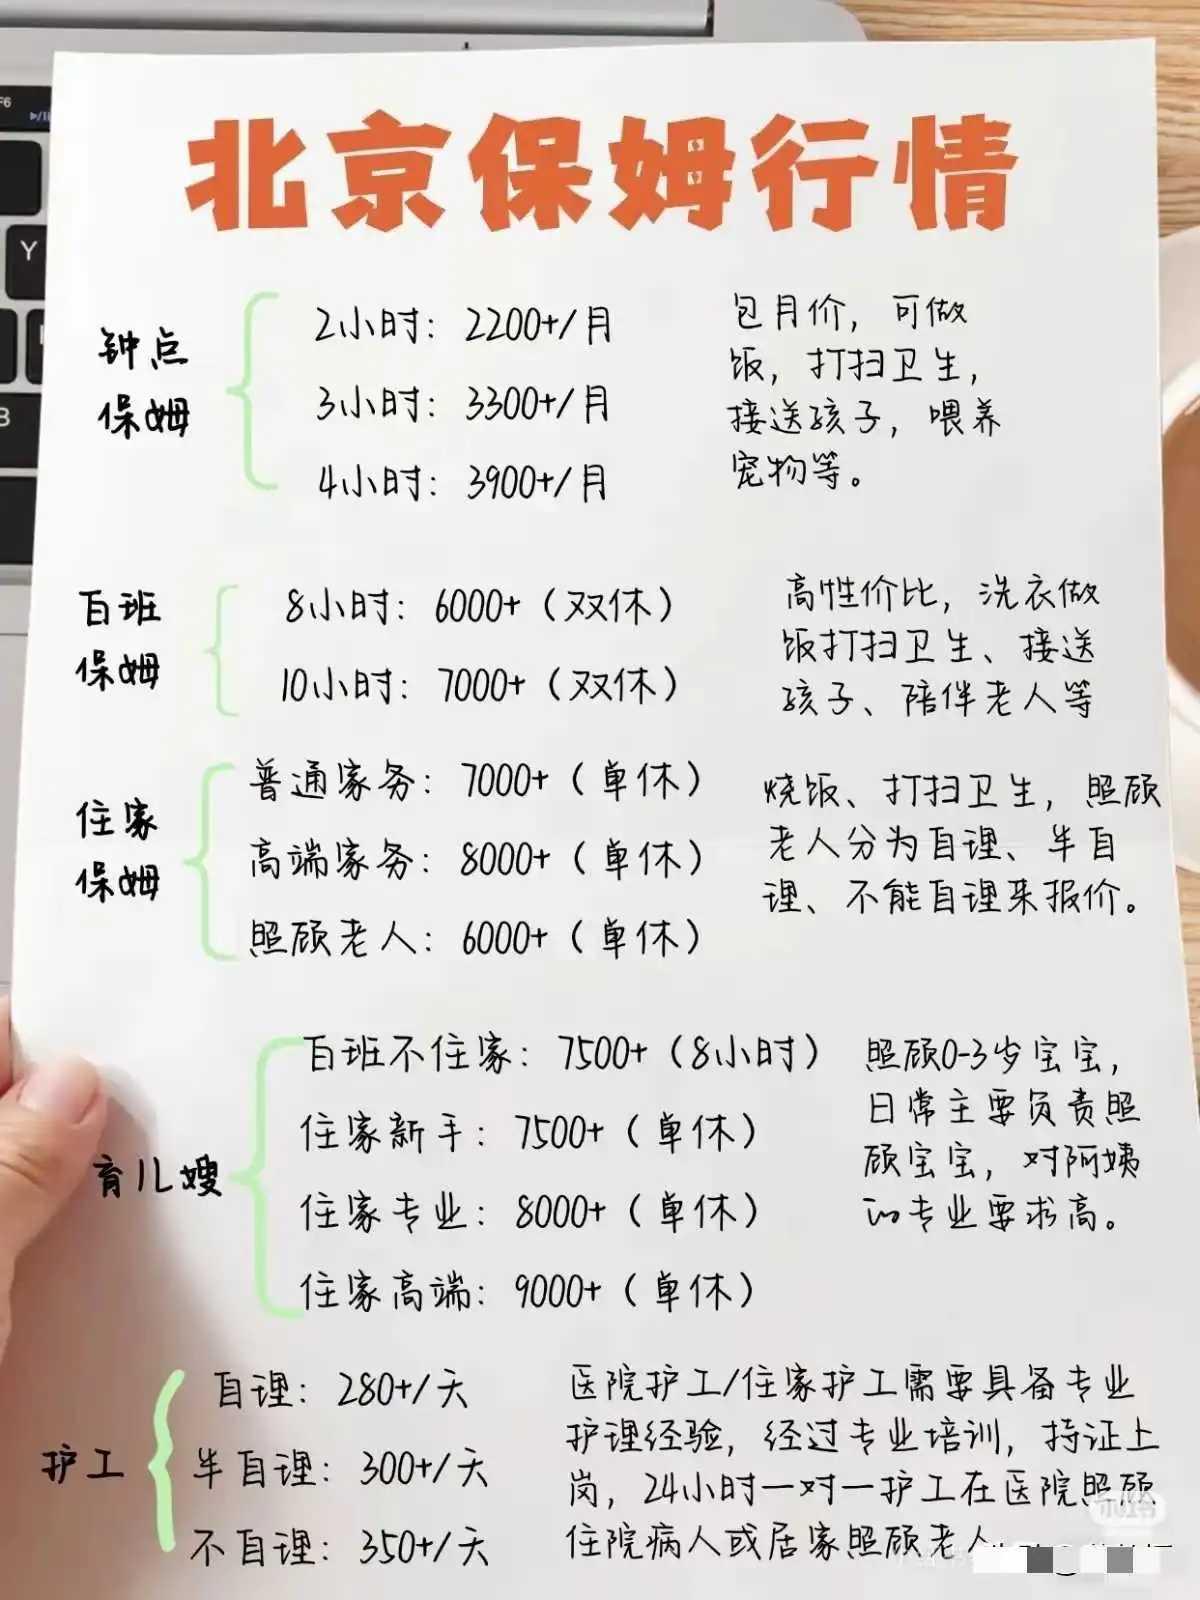 北京保姆行情
钟点
保姆
2小时：2200+/月
3小时：3300+/月
4小时：3900+/月
包月价，可做
饭，打扫卫生，
接送孩子，喂养
宠物等。
白班
保姆
8小时：6000+（双休）
10小时：7000+（双休）
高性价比，洗衣做
饭打扫卫生、接送
孩子、陪伴老人等
住家
保姆
普通家务：7000+（单休）
高端家务：8000+（单休）
照顾老人：6000+（单休）
烧饭、打扫卫生，照顾
老人分为自理、半自
理、不能自理来报价。
育儿嫂
白班不住家：7500+（8小时）
住家新手：7500+（单休）
住家专业：8000+（单休）
住家高端：9000+（单休）
照顾0-3岁宝宝，
日常主要负责照
顾宝宝，对阿姨
的专业要求高。
护工
自理：280+/天
半自理：300+/天
不自理：350+/天
医院护工/住家护工需要具备专业
护理经验，经过专业培训，持证上
岗，24小时一对一护工在医院照顾
住院病人或居家照顾老人
F6
Y
B